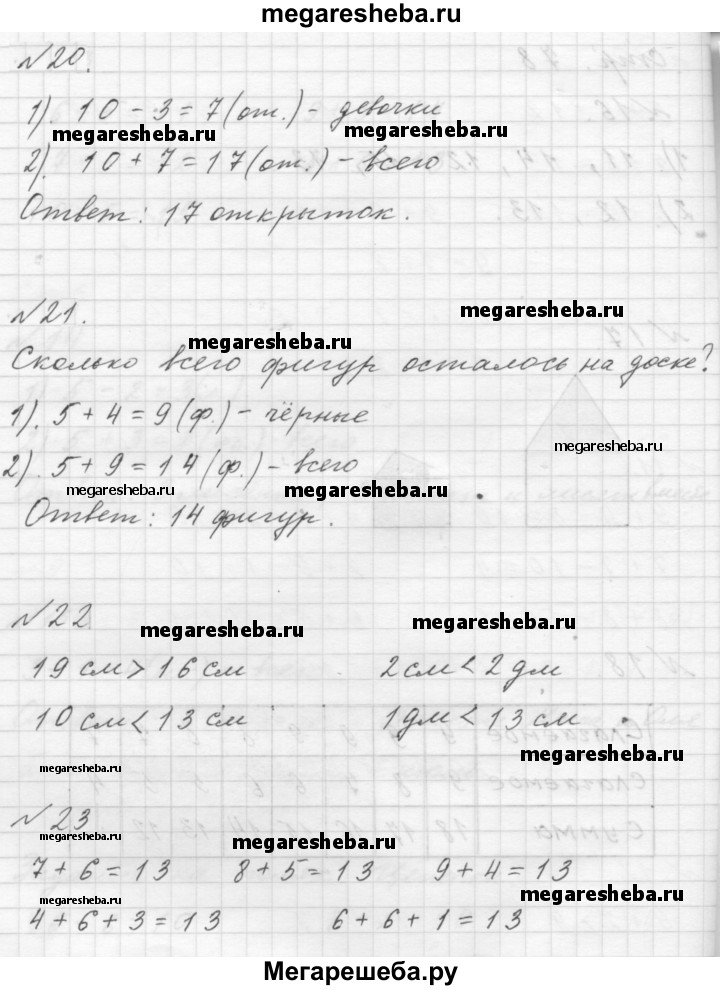 megaresheba.ru
№20.
1). 10 - 3 = 7 (от.) - девочки
megaresheba.ru megaresheba.ru
2). 10 + 7 = 17 (от.) - всего
Ответ: 17 открыток.
№21.
megaresheba.ru
megaresheba.ru
Сколько всего фигур осталось на доске?
1). 5 + 4 = 9 (ф.) - чёрные
megaresheba.ru
2). 5 + 9 = 14 (ф.) - всего
megaresheba.ru megaresheba.ru
Ответ: 14 фигур.
№22
megaresheba.ru megaresheba.ru
19 см > 16 см 2 см < 2 дм
10 см < 13 см 1 дм < 13 см
megaresheba.ru
megaresheba.ru
№23
megaresheba.ru megaresheba.ru
7 + 6 = 13 8 + 5 = 13 9 + 4 = 13
megaresheba.ru megaresheba.ru
4 + 6 + 3 = 13 6 + 6 + 1 = 13
Мегарешеба.ру